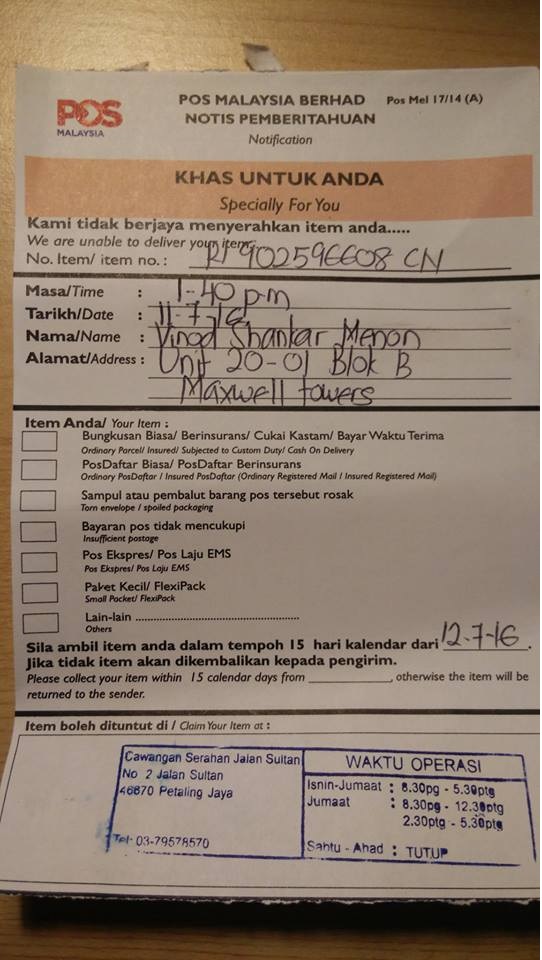 POS
MALAYSIA
POS MALAYSIA BERHAD
Pos Mel 17/14 (A)
NOTIS PEMBERITAHUAN
Notification
KHAS UNTUK ANDA
Specially For You
Kami tidak berjaya menyerahkan item anda.....
We are unable to deliver your item
No. Item/ item no. : RI 902596608 CN
Masa/Time : 1-40 p.m
Tarikh/Date : 11-7-16
Nama/Name : Vinod Shankar Menon
Alamat/Address : Unit 20-01 Blok B
Maxwell towers
Item Anda/ Your Item :
Bungkusan Biasa/ Berinsurans/ Cukai Kastam/ Bayar Waktu Terima
Ordinary Parcel/ Insured/ Subjected to Custom Duty/ Cash On Delivery
PosDaftar Biasa/ PosDaftar Berinsurans
Ordinary PosDaftar / Insured PosDaftar (Ordinary Registered Mail / Insured Registered Mail)
Sampul atau pembalut barang pos tersebut rosak
Torn envelope / spoiled packaging
Bayaran pos tidak mencukupi
Insufficient postage
Pos Ekspres/ Pos Laju EMS
Pos Ekspres/ Pos Laju EMS
Paket Kecil/ FlexiPack
Small Packet/ FlexiPack
Lain-lain ....................................................
Others
Sila ambil item anda dalam tempoh 15 hari kalendar dari 12-7-16.
Jika tidak item akan dikembalikan kepada pengirim.
Please collect your item within 15 calendar days from ____________, otherwise the item will be
returned to the sender.
Item boleh dituntut di / Claim Your Item at :
Cawangan Serahan Jalan Sultan
No 2 Jalan Sultan
46670 Petaling Jaya
Tel: 03-79578570
WAKTU OPERASI
Isnin-Jumaat : 8.30pg - 5.30ptg
Jumaat : 8.30pg - 12.30ptg
2.30ptg - 5.30ptg
Sabtu - Ahad : TUTUP